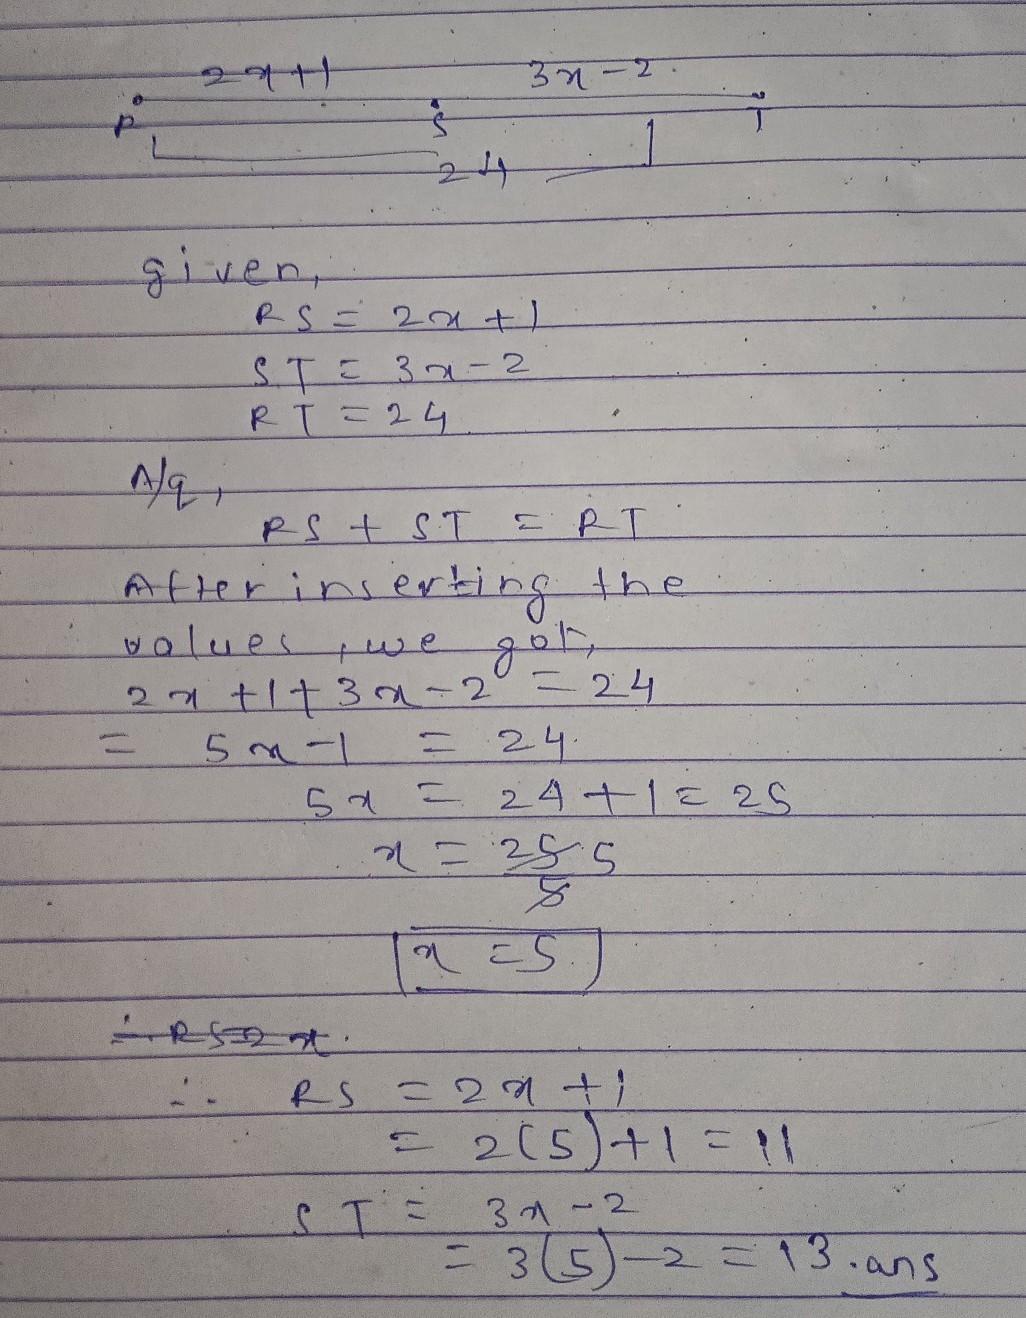 2x+1 3x-2
R S T
24
given,
RS = 2x+1
ST = 3x-2
RT = 24
A/q,
RS + ST = RT
After inserting the
values, we got,
2x+1+3x-2 = 24
= 5x-1 = 24
5x = 24+1 = 25
x = 25/5 5
x = 5
∴ RS=2x
∴ RS = 2x+1
= 2(5)+1 = 11
ST = 3x-2
= 3(5)-2 = 13.ans